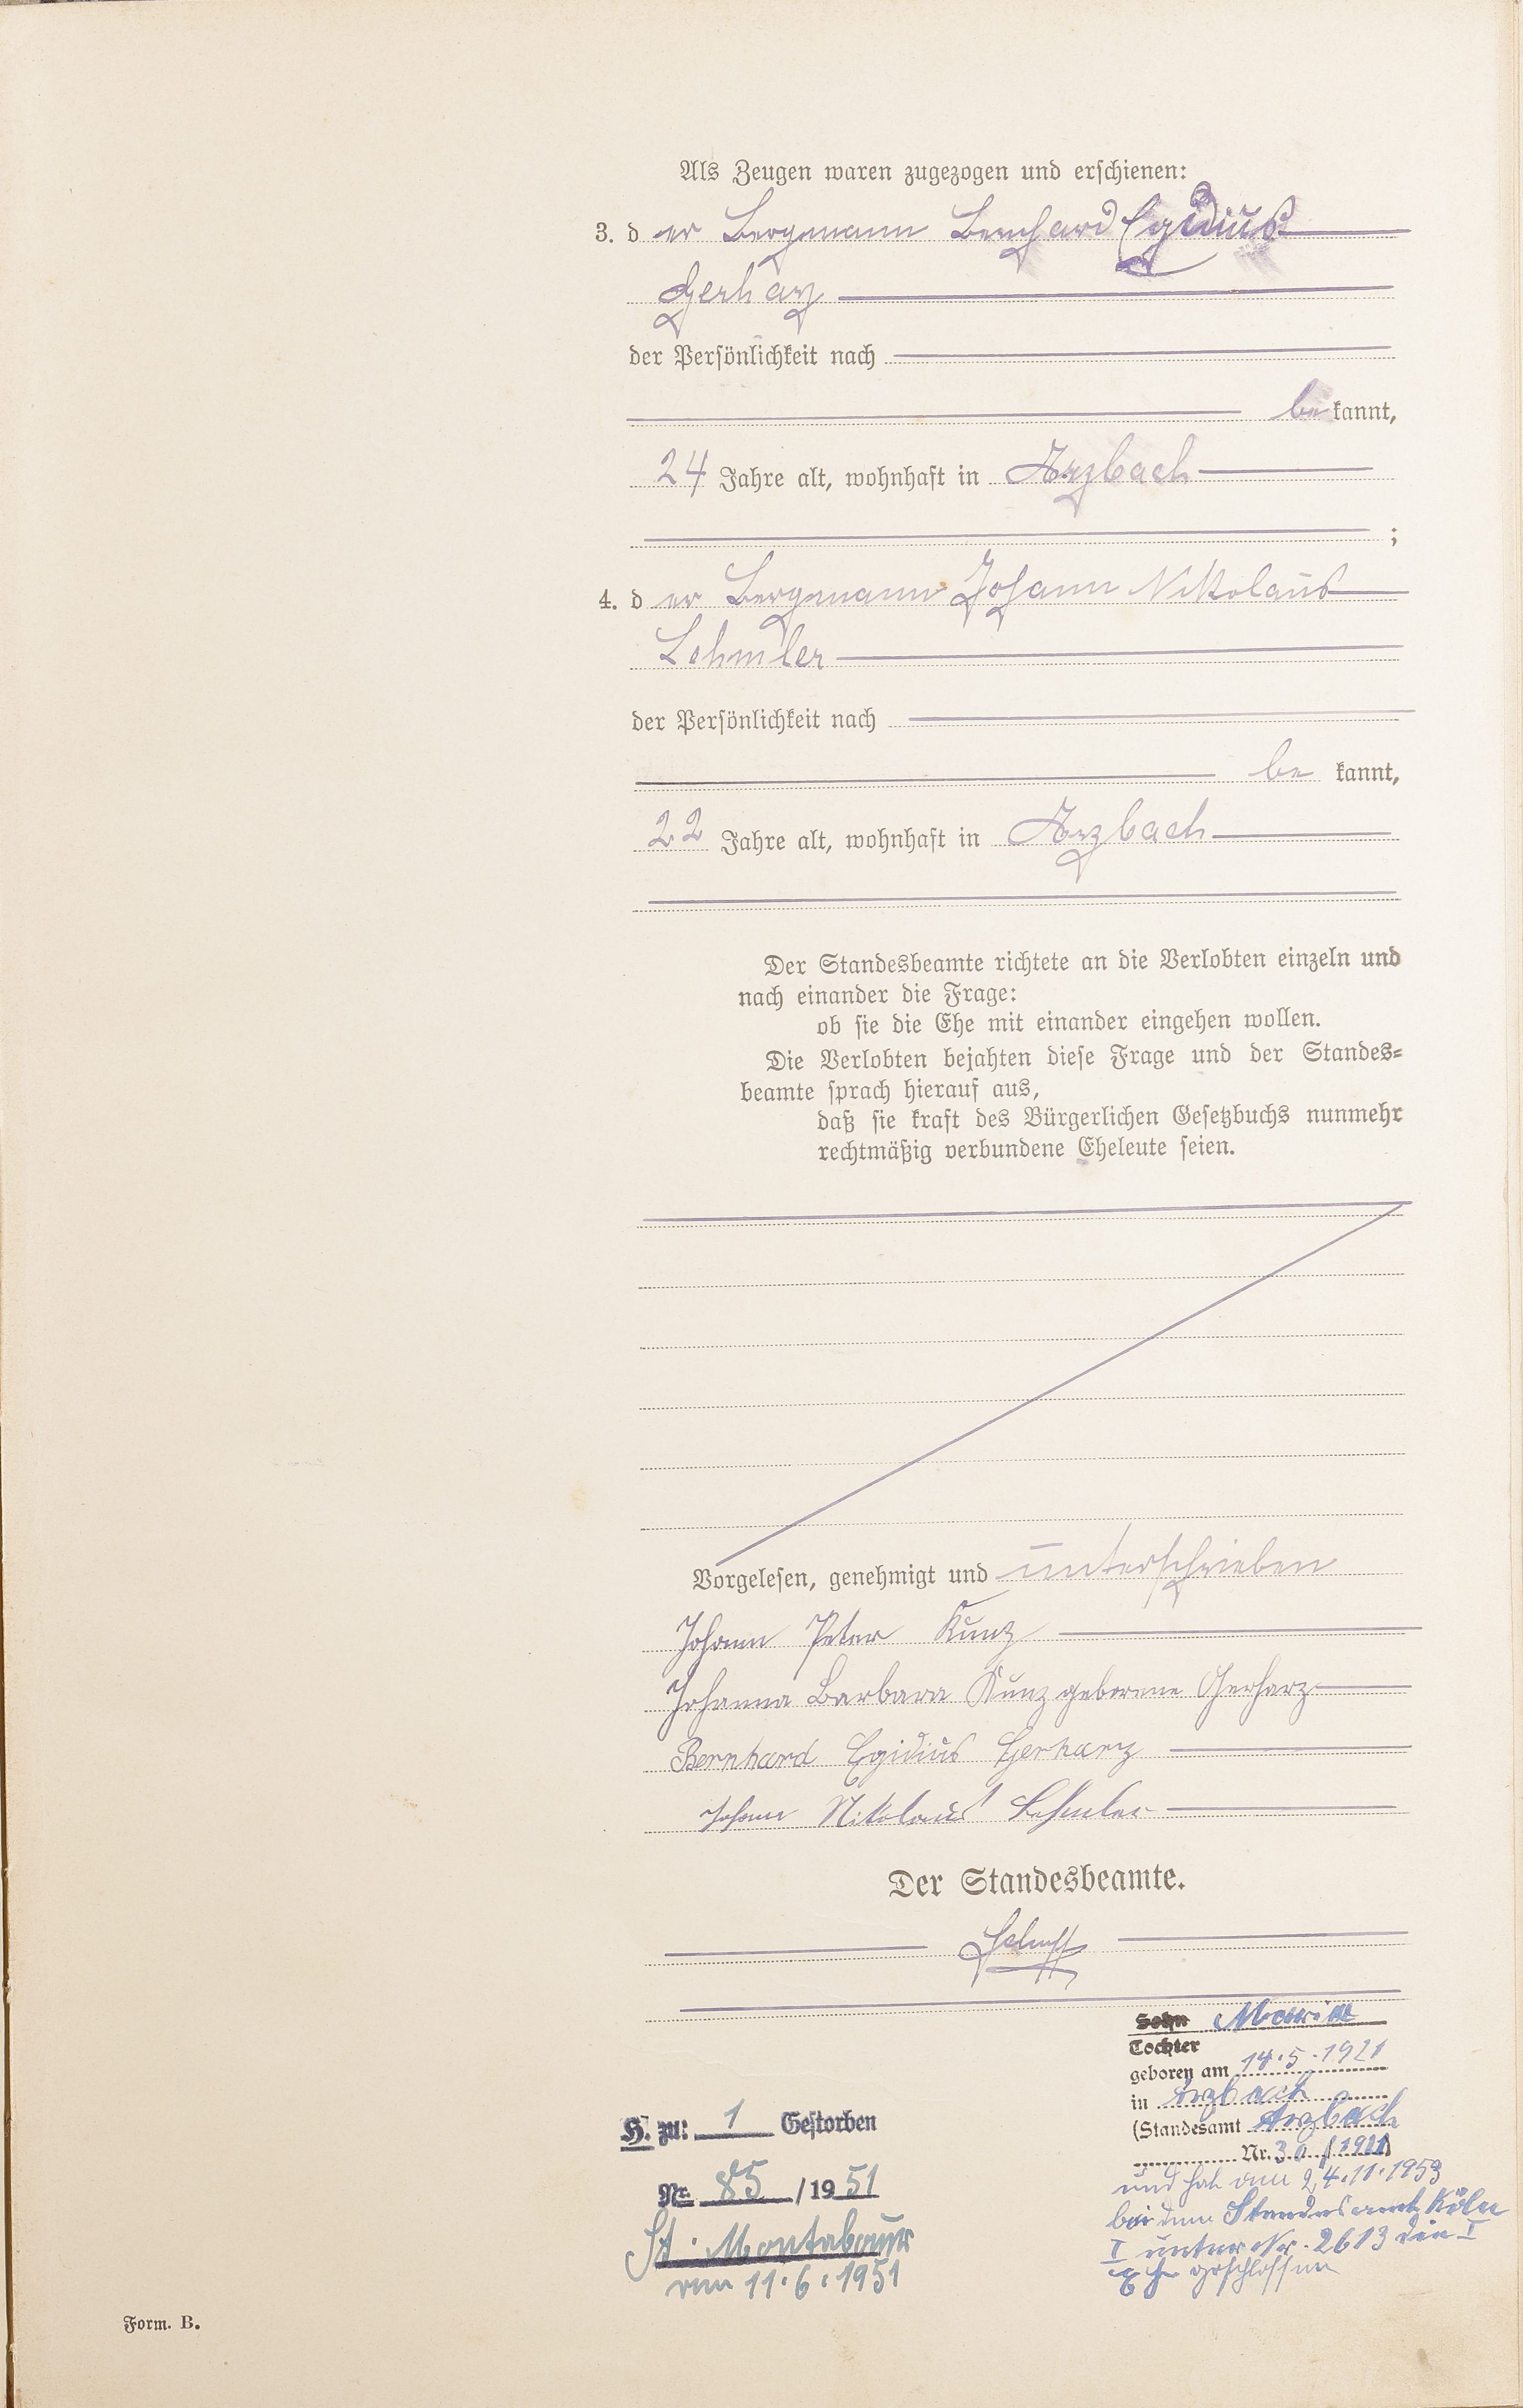 Als Zeugen waren zugezogen und erschienen:
3. der Bergmann Bernhard Egidius
Gerharz
der Persönlichkeit nach
bekannt,
24 Jahre alt, wohnhaft in Arzbach
;
4. der Bergmann Johann Nikolaus
Lehmler
der Persönlichkeit nach
be kannt,
22 Jahre alt, wohnhaft in Arzbach
Der Standesbeamte richtete an die Verlobten einzeln und
nach einander die Frage:
ob sie die Ehe mit einander eingehen wollen.
Die Verlobten bejahten diese Frage und der Standes=
beamte sprach hierauf aus,
daß sie kraft des Bürgerlichen Gesetzbuchs nunmehr
rechtmäßig verbundene Eheleute seien.
Vorgelesen, genehmigt und unterschrieben
Johann Peter Kunz
Johanna Barbara Kunz geborene Gerharz
Bernhard Egidius Gerharz
Johann Nikolaus Lehmler
Der Standesbeamte.
Sohn Maria
Tochter
geboren am 14.5.1921
in Arzbach
(Standesamt Arzbach
Nr. 30 / 1921)
und hat am 24.11.1953
bei dem Standesamt Köln
I unter Nr. 2613 die I
Ehe geschlossen
H. zu: 1 Gestorben
Nr. 85 / 1951
St. Montabaur
vom 11.6.1951
Form. B.